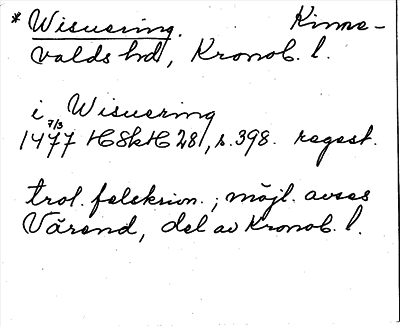 * Wisuering. Kinne-
valds hd, Kronob. l.
i Wisuering
1477 7/3 HSkH 281, s. 398. regest.
trol. felskrivn.; möjl. avses
Värend, del av Kronob. l.